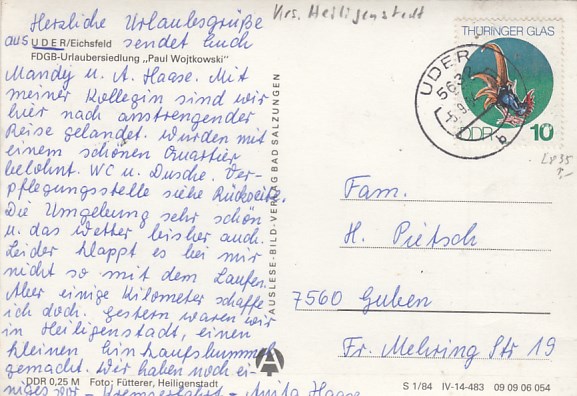 Krs. Heiligenstadt
Herzliche Urlaubsgrüße
aus UDER/Eichsfeld sendet Euch
FDGB-Urlaubersiedlung „Paul Wojtkowski"
Mandy u. A. Haase. Mit
meiner Kollegin sind wir
hier nach anstrengender
Reise gelandet. Wurden mit
einem schönen Quartier
belohnt. WC u. Dusche. Ver-
pflegungsstelle siehe Rückseite.
Die Umgebung sehr schön
u. das Wetter bisher auch.
Leider klappt es bei mir
nicht so mit dem Laufen.
Aber einige Kilometer schaffe
ich doch. Gestern waren wir
in Heiligenstadt, einen
kleinen Einkaufsbummel
gemacht. Wir haben noch ei-
niges vor - Kremserfahrt - Anita Haase
DDR 0,25 M Foto: Fütterer, Heiligenstadt
AUSLESE-BILD-VERLAG BAD SALZUNGEN
A
THÜRINGER GLAS
DDR 10
UDER
5632
b
Fam.
H. Pietsch
7560 Guben
Fr. Mehring Str 19
S 1/84 IV-14-483 09 09 06 054